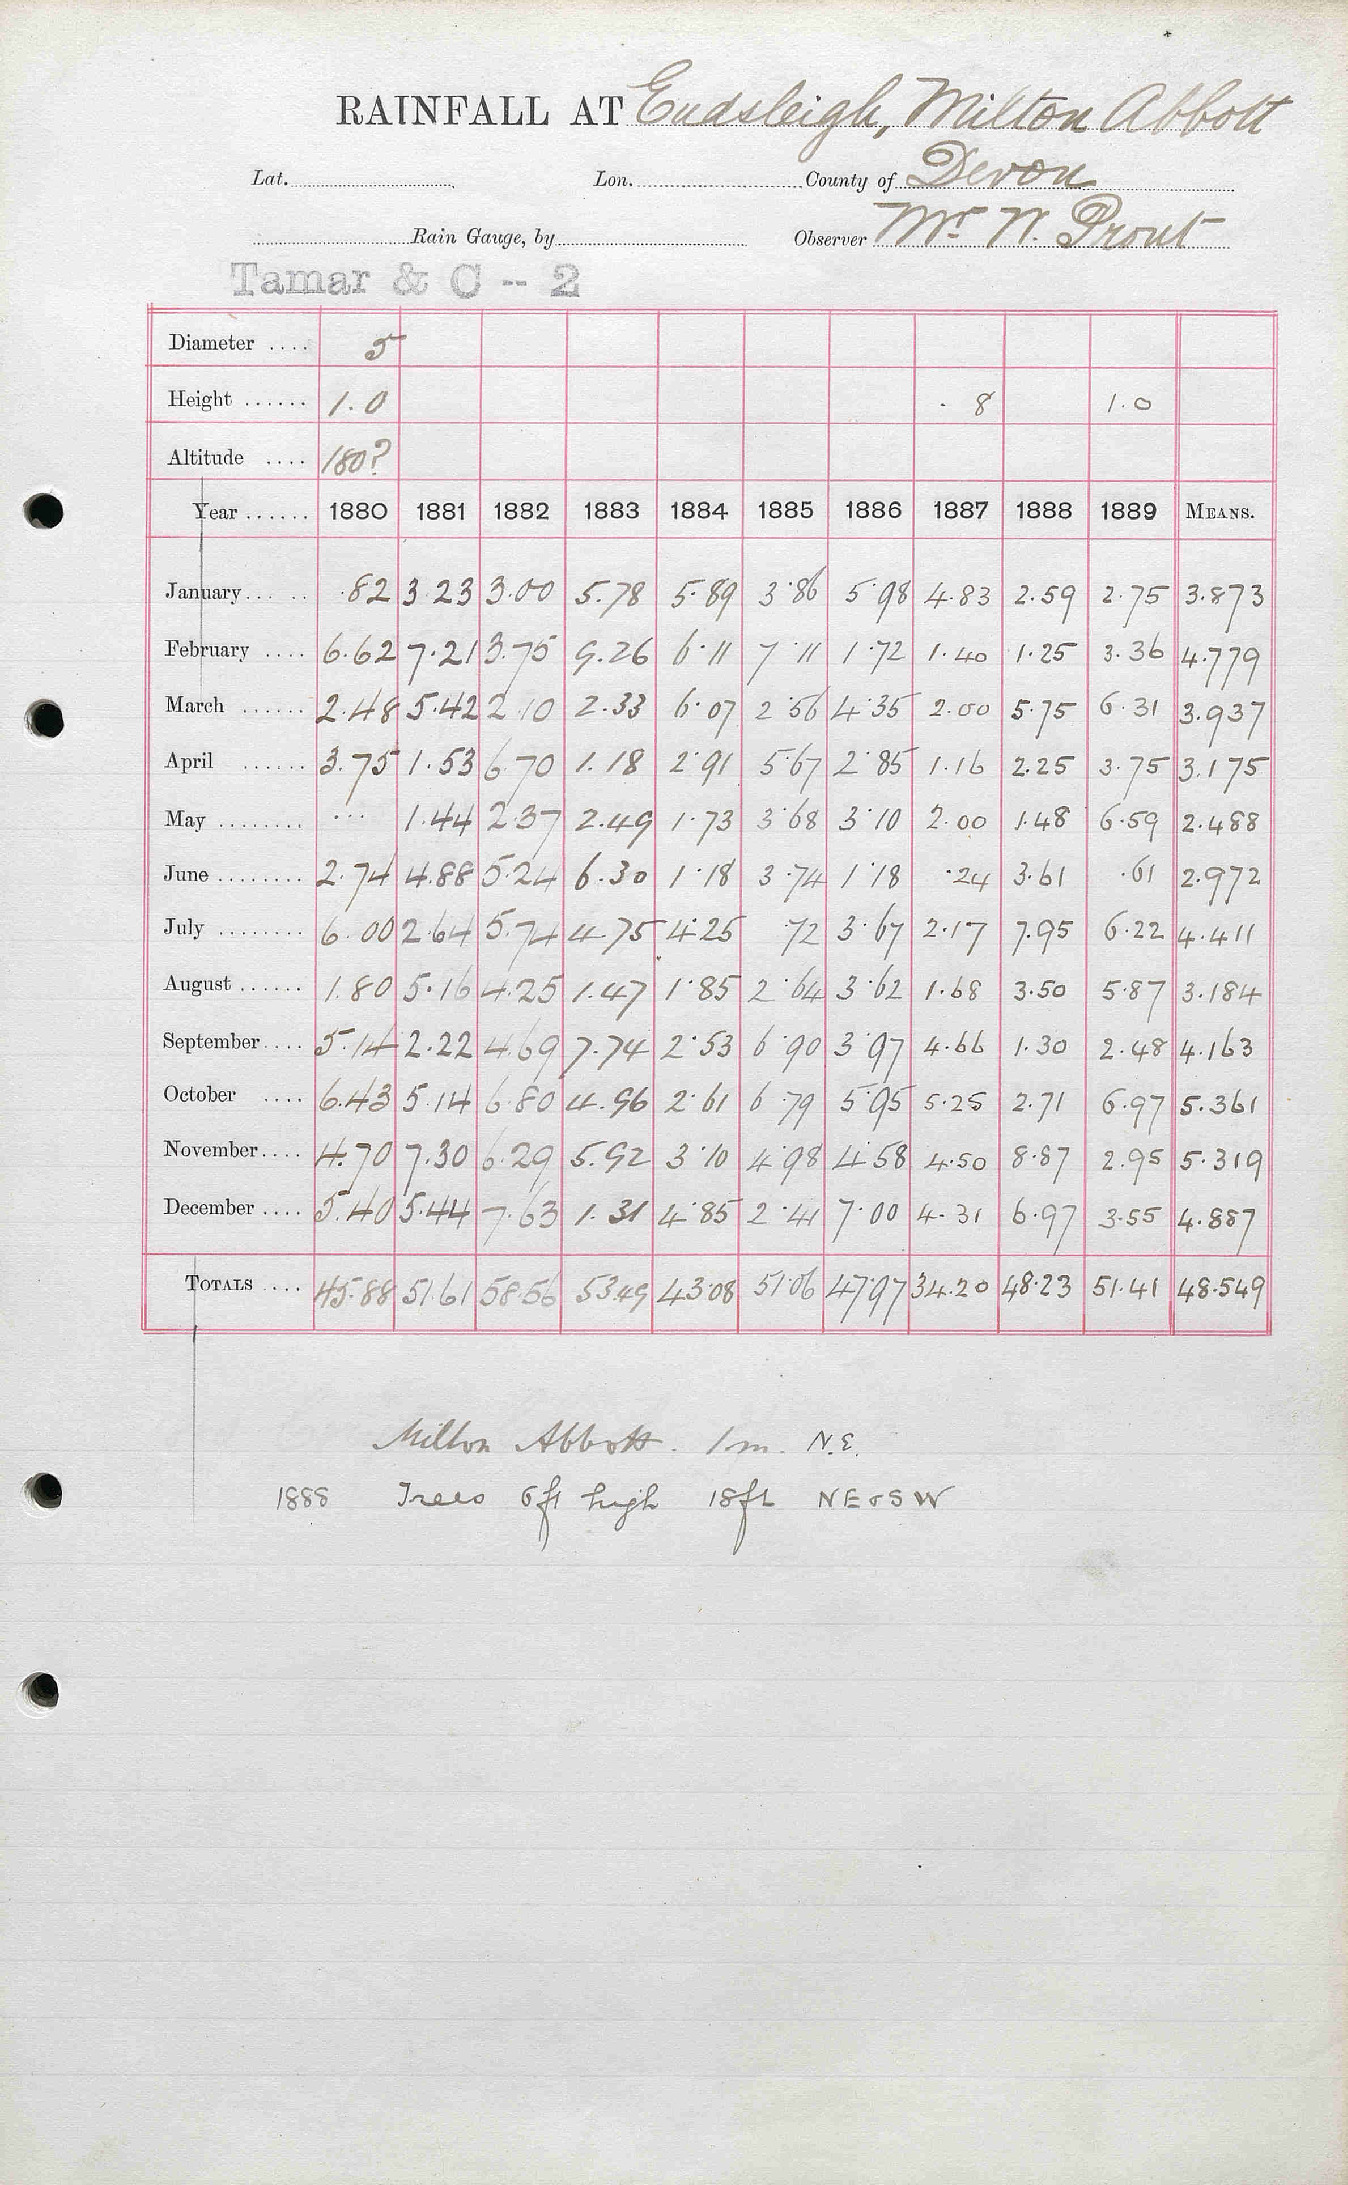 RAINFALL AT Endsleigh, Milton Abbott
Lat. Lon. County of Devon
Rain Gauge, by Observer Mr W. Prout
Tamar & C -- 2
Diameter .... 5
Height ...... 1.0 .8 1.0
Altitude .... 180?
Year ...... 1880 1881 1882 1883 1884 1885 1886 1887 1888 1889 MEANS.
January .82 3.23 3.00 5.78 5.89 3.86 5.98 4.83 2.59 2.75 3.873
February .... 6.62 7.21 3.75 9.26 6.11 7.11 1.72 1.40 1.25 3.36 4.779
March ...... 2.48 5.42 2.10 2.33 6.07 2.56 4.35 2.00 5.75 6.31 3.937
April ...... 3.75 1.53 6.70 1.18 2.91 5.67 2.85 1.16 2.25 3.75 3.175
May ........ ... 1.44 2.37 2.49 1.73 3.68 3.10 2.00 1.48 6.59 2.488
June ........ 2.74 4.88 5.24 6.30 1.18 3.74 1.18 .24 3.61 .61 2.972
July ........ 6.00 2.64 5.74 4.75 4.25 .72 3.67 2.17 7.95 6.22 4.411
August ...... 1.80 5.16 4.25 1.47 1.85 2.64 3.62 1.68 3.50 5.87 3.184
September.... 5.14 2.22 4.69 7.74 2.53 6.90 3.97 4.66 1.30 2.48 4.163
October .... 6.43 5.14 6.80 4.96 2.61 6.79 5.95 5.25 2.71 6.97 5.361
November.... 4.70 7.30 6.29 5.92 3.10 4.98 4.58 4.50 8.87 2.95 5.319
December .... 5.40 5.44 7.63 1.31 4.85 2.41 7.00 4.31 6.97 3.55 4.887
TOTALS .... 45.88 51.61 58.56 53.49 43.08 51.06 47.97 34.20 48.23 51.41 48.549
Milton Abbott. 1m. N.E.
1888 Trees 6ft high 18ft NE & SW